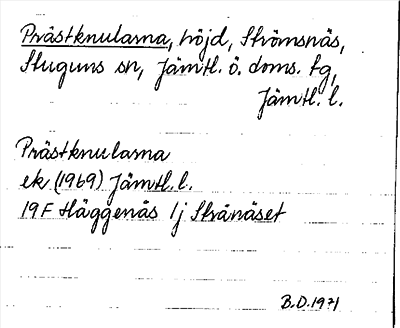 Prästknularna, höjd, Strömsnäs,
Stuguns sn, Jämtl. ö. doms. tg,
Jämtl. l.
Prästknularna
ek (1969) Jämtl. l.
19F Häggenås 1j Strånäset
B.D. 1971